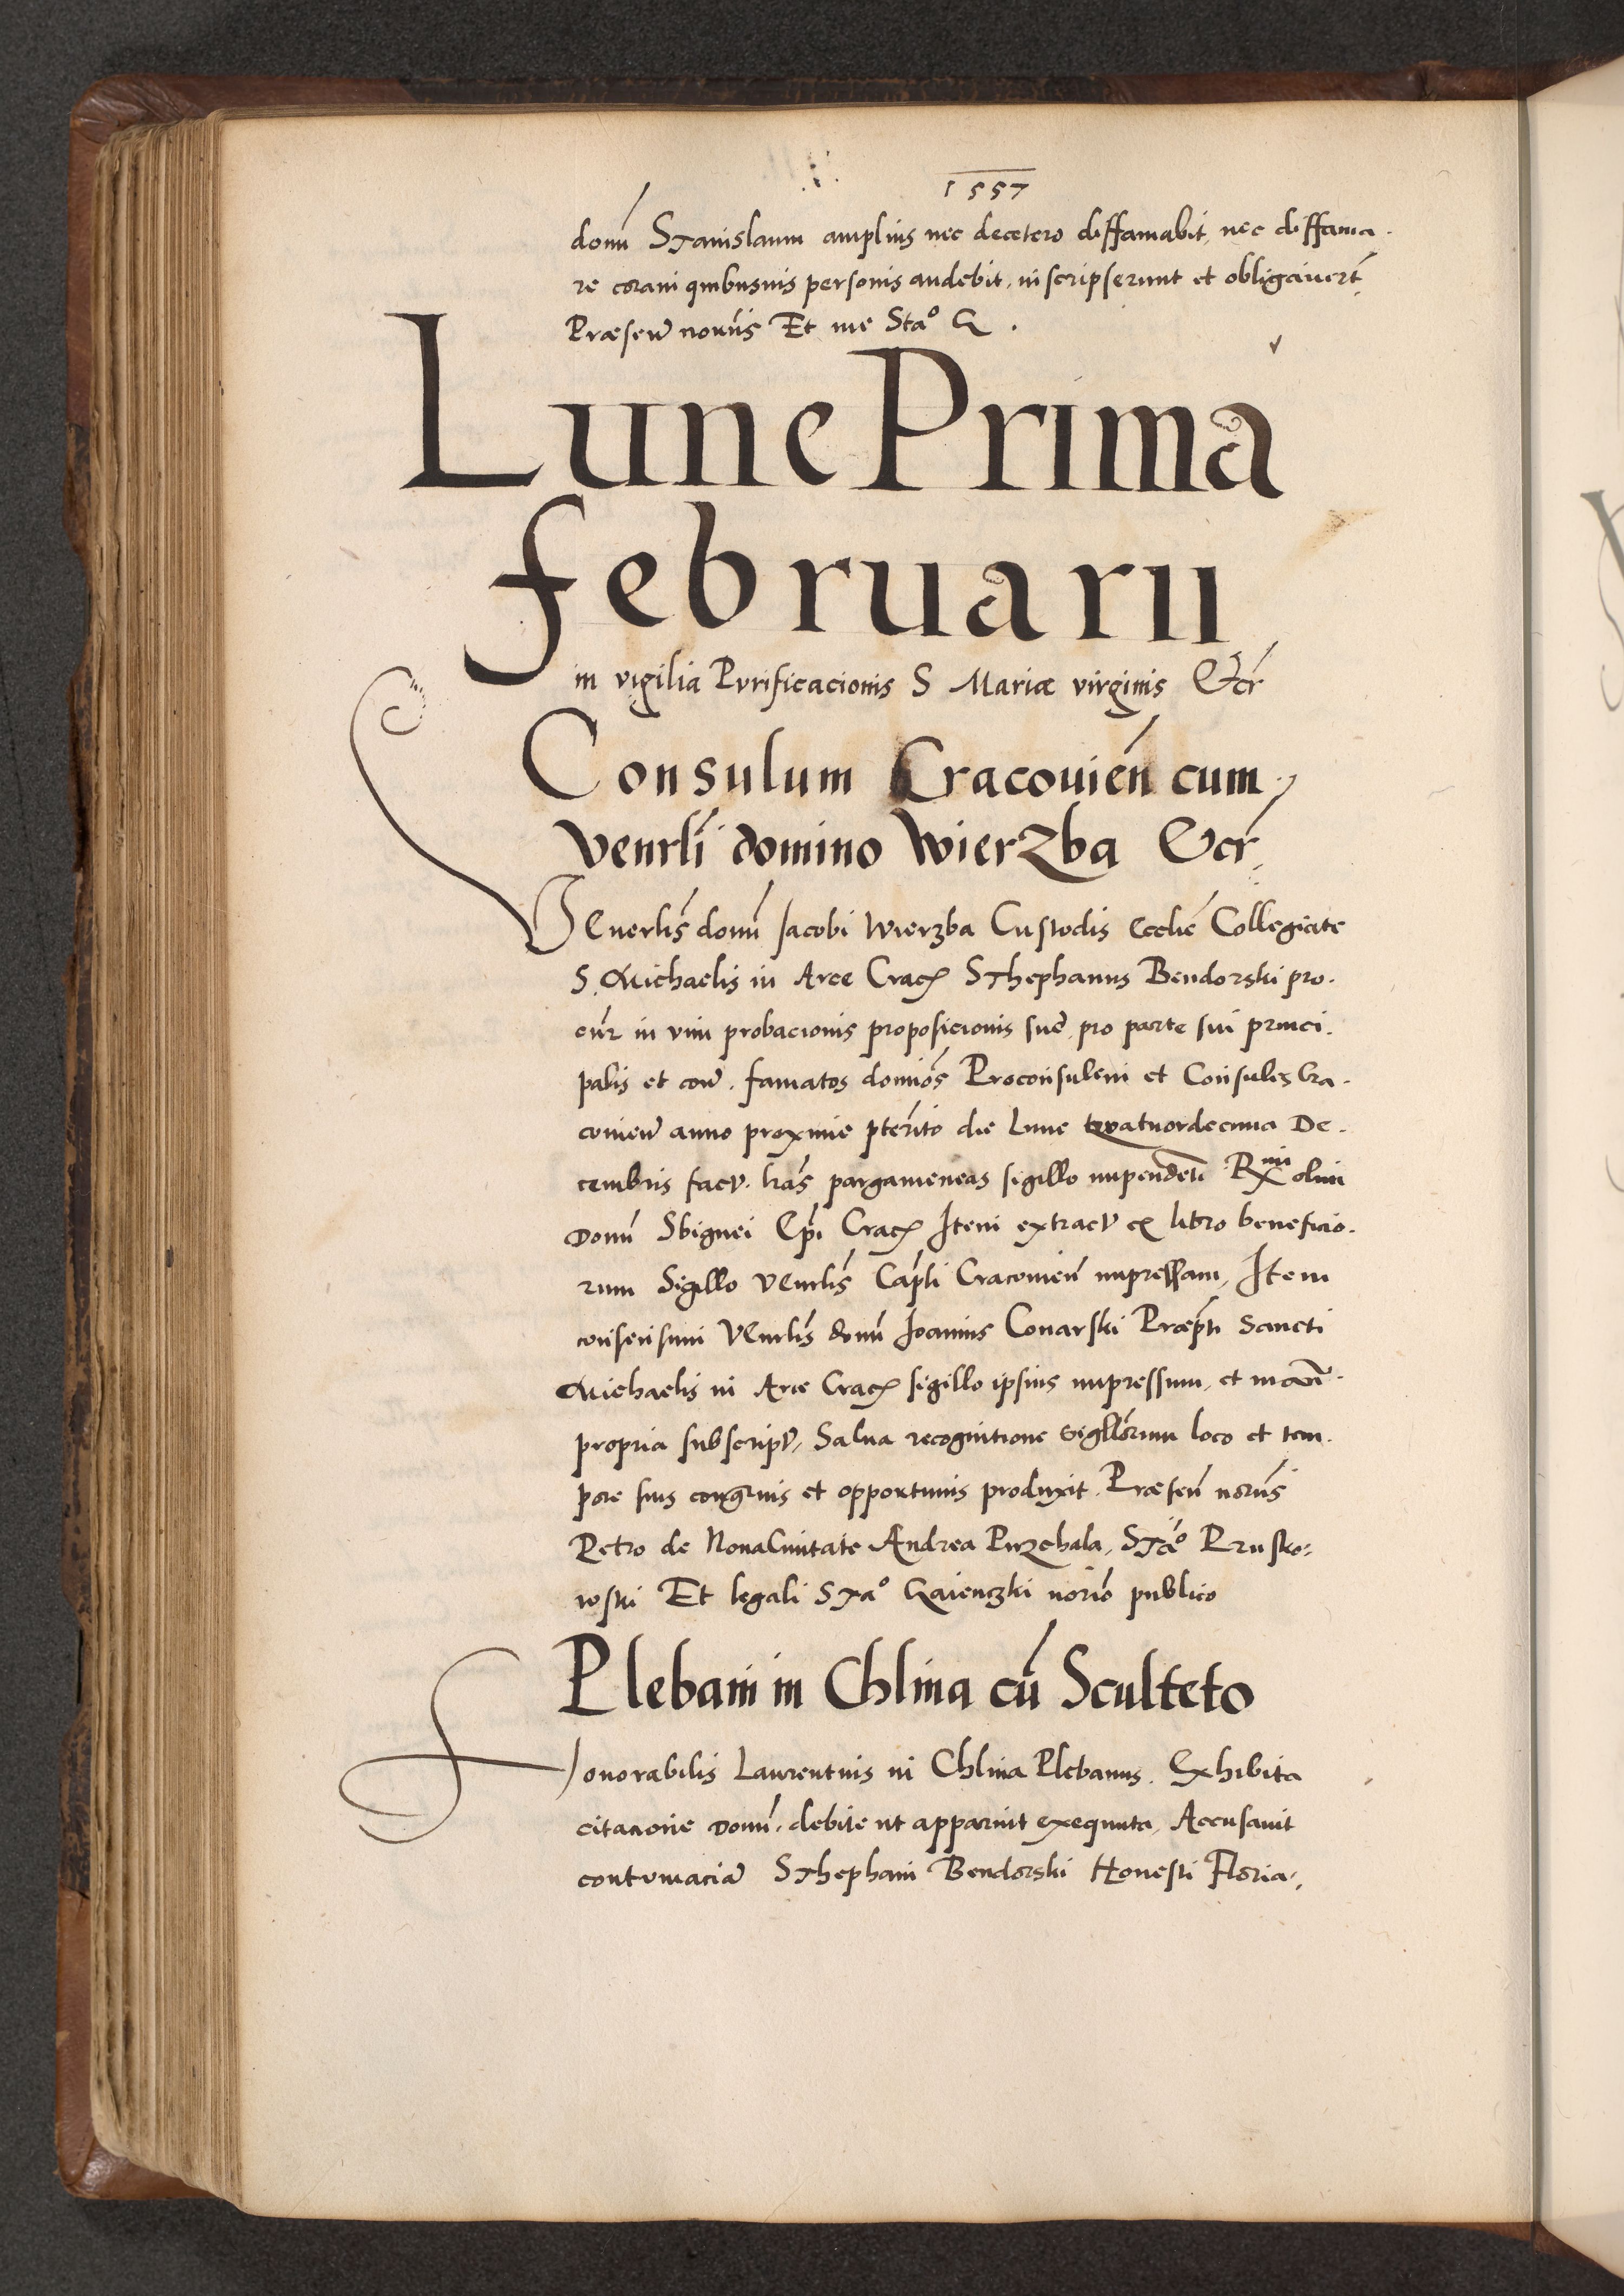 1557
domũ Stanislaum amplius nec decetero diffamabit, nec diffama-
re coram quibusuis personis audebit, inscripserunt et obligauerũt
Præsen̄ notariis Et me Sta° G.
Lune Prima
Februarii
in vigilia Purificacionis S Mariæ virginis Etcr̄
Consulum Cracouień cum
venrli domino Wierzba Etcr̄
Venerlis domũ Jacobi Wierzba Custodis Ecclie Collegiate
S. Michaelis in Arce Crac̄ Sthephanus Bendorski pro-
cur̄ in vim probacionis proposicionis sue, pro parte sui princi-
palis et con̄. famatos domios Proconsulem et Consules Cra-
couien̄ anno proxime pterito die Lune quatuordecima De-
cembris fact. l̃ras pargameneas sigillo inpendeti Rmi olim
Domũ Sbignei Epi Crac̄ Item extract ex libro beneficio-
rum Sigillo Venrlis Capli Cracouień inpressam, Item
consensum Venrlis domũ Joannis Conarski Præpti Sancti
Michaelis in Arce Crac̄ sigillo ipsius inpressum, et manu
propria subscript, Salua recognitione sigllorum loco et tem-
pore suis congruis et opportunis produxit. Præsen̄ notariis
Petro de NouaCiuitate Andrea Przebala, Sta° Prusko-
wski Et legali Sta° Gaienczki norio publico
Plebani in Chlina cũ Sculteto
Honorabilis Laurentius in Chlina Plebanus. Exhibita
citacione Domũ. debite ut apparuit exequuta, Accusauit
contumaciam̄ Sthephani Bendorski Honesti Floria-